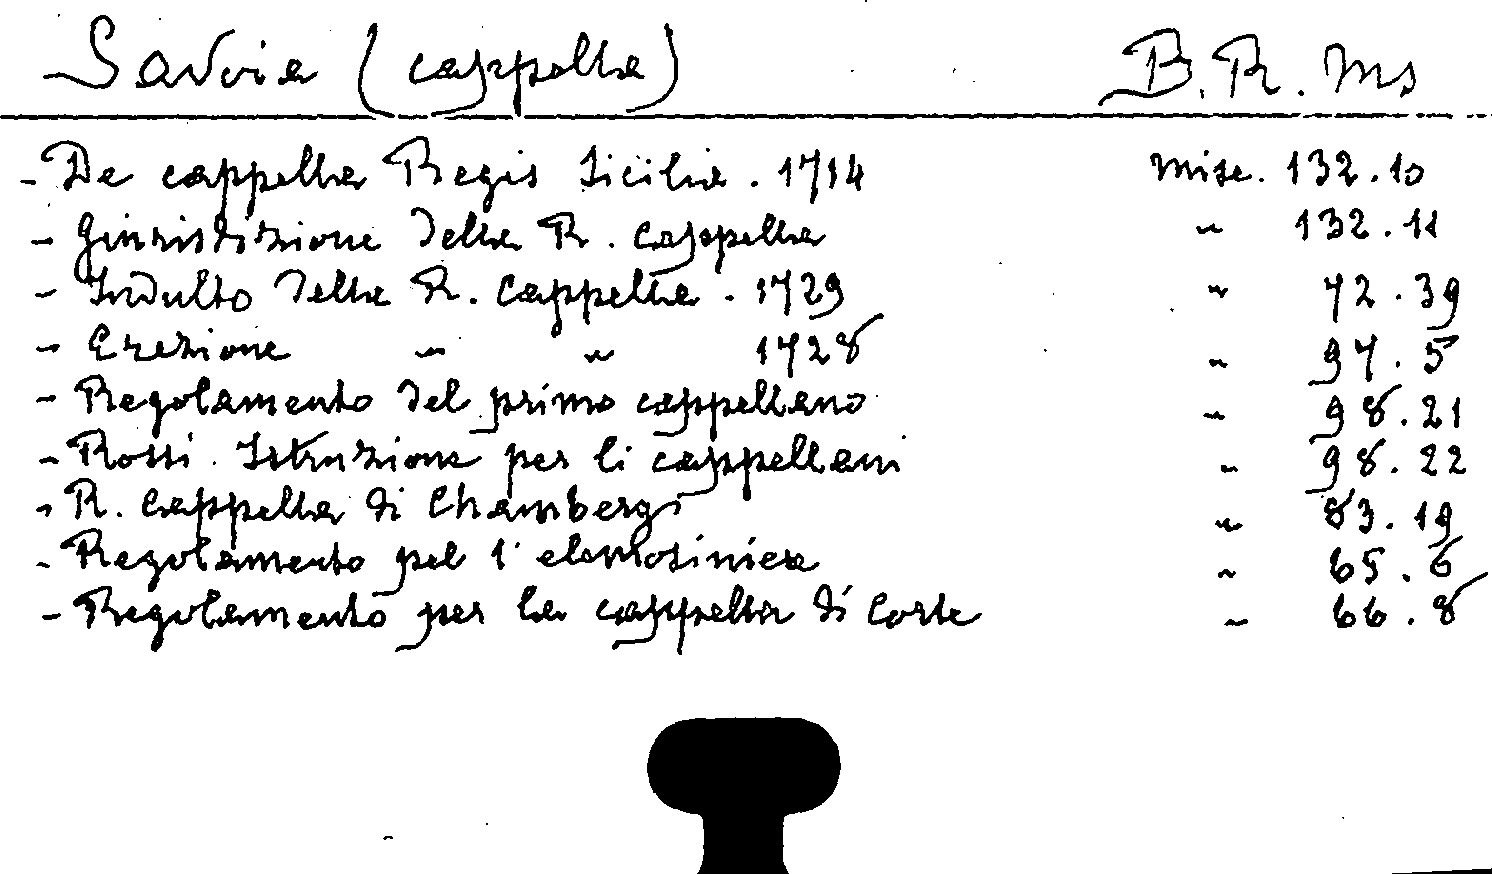 Savoia (cappella) B. R. Ms
- De cappella Regis Siciliae. 1714 Misc. 132.10
- Giurisdizione della R. cappella " 132.11
- Indulto della R. Cappella. 1729 " 72.39
- Erezione " " 1728 " 97.5
- Regolamento del primo cappellano " 98.21
- Rossi. Istruzione per li cappellani " 98.22
- R. Cappella di Chambery " 83.19
- Regolamento pel 1° elemosiniere " 65.6
- Regolamento per la cappella di Corte " 66.8